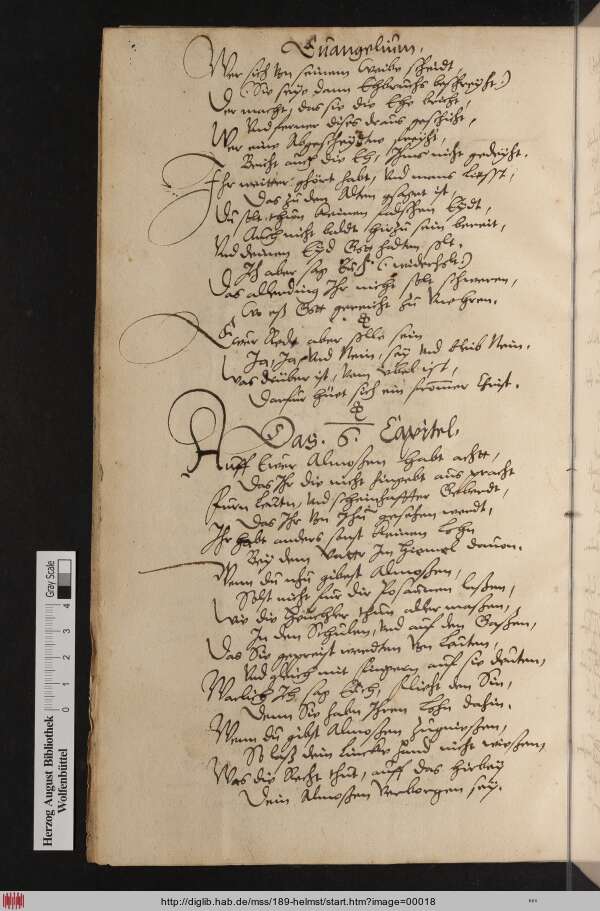 Euangelium.
Wer sich von seinem Weibe scheidt,
(: Sie seye dann Ehbruchs beschreyht:)
Der macht, das sie die Ehe bricht,
Und ferner dises draus geschicht,
Wer eine Abgescheydtne freyht,
Bricht auch die Eh, Ihms nicht gedeyht.
Ihr weitter ghört habt, und mans liesst,
Das zu den Alten gesaget ist,
Du solt thun keinen falschen Eydt,
Auch nicht baldt hirzu sein bereit,
Und deinen Eyd Gott halten solt.
Ich aber sag Euch
Das allerding Ihr nicht solt schweren,
Wo eß Gott gereicht zu Unehren.
Eüer Rede aber solle sein
Ja, Ja, Und Nein, sey Und bleib Nein.
Was drüber ist, vom übel ist,
Darfür hüet sich ein frommer Christ.
Das. 6. Capitel.
Auff Eüer Almosen habt acht,
Das Ihr die nicht hingebt aus pracht
Fürn Leütn, und scheinhaffter
Das Ihr von Ihn gesehen werdt,
Ihr habt anders sonst keinen Lohn
Bey dem Vatter Im Himmel davon.
Wenn du nhu gibest Almosen,
Solt nicht für dir Posaunen laßen,
Wie die Heüchler thun aller maßen,
In den Schulen, und auf den Gaßen,
Das Sie gepreist werdten von Leüten,
Und gleich mit fingern auf sie deüten,
Warlich Ich sag Euch, den Sin,
Denn Sie habn Ihren Lohn dahin.
Wenn du gibst Almosen
So laß dein Lincke Hand nicht wißen,
Was die Recht thut, auff das hierbey
Dein Almosen verborgen sey.
Herzog August Bibliothek
Wolfenbüttel
Gray Scale
0 1 2 3 4
http://diglib.hab.de/mss/189-helmst/start.htm?image=00018